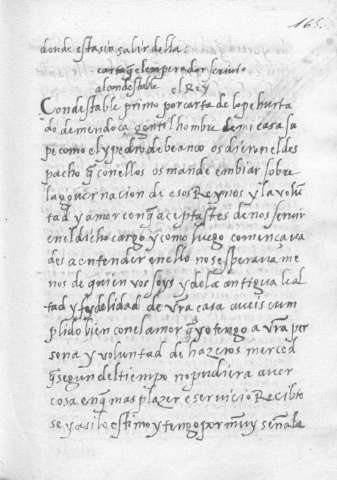 165.
donde esta sin salir della.
carta q̃ el emperador scrivio
al condestable el Rey
Condestable primo por carta de lope hurta
do de mendoça gentil hombre de mi casa sa
pe como el y pedro de beanco os dieron el des
pacho q̃ con ellos os mande embiar sobre
la governacion de esos Reynos y la volũ
tad y amor con q̃ aceptastes de nos servir
en el dicho cargo y como luego començava
des a entender en ello no se esperava me
nos de quien vos soys y de la antigua leal
tad y fydelidad de vr̃a casa aveis cum
plido bien con el amor q̃ yo tengo a vr̃a per
sona y voluntad de hazeros merced
q̃ segun del tiempo no pudiera aver
cosa en q̃ mas plazer e servicio Recibie
se y asi lo estimo y tengo por muy señala